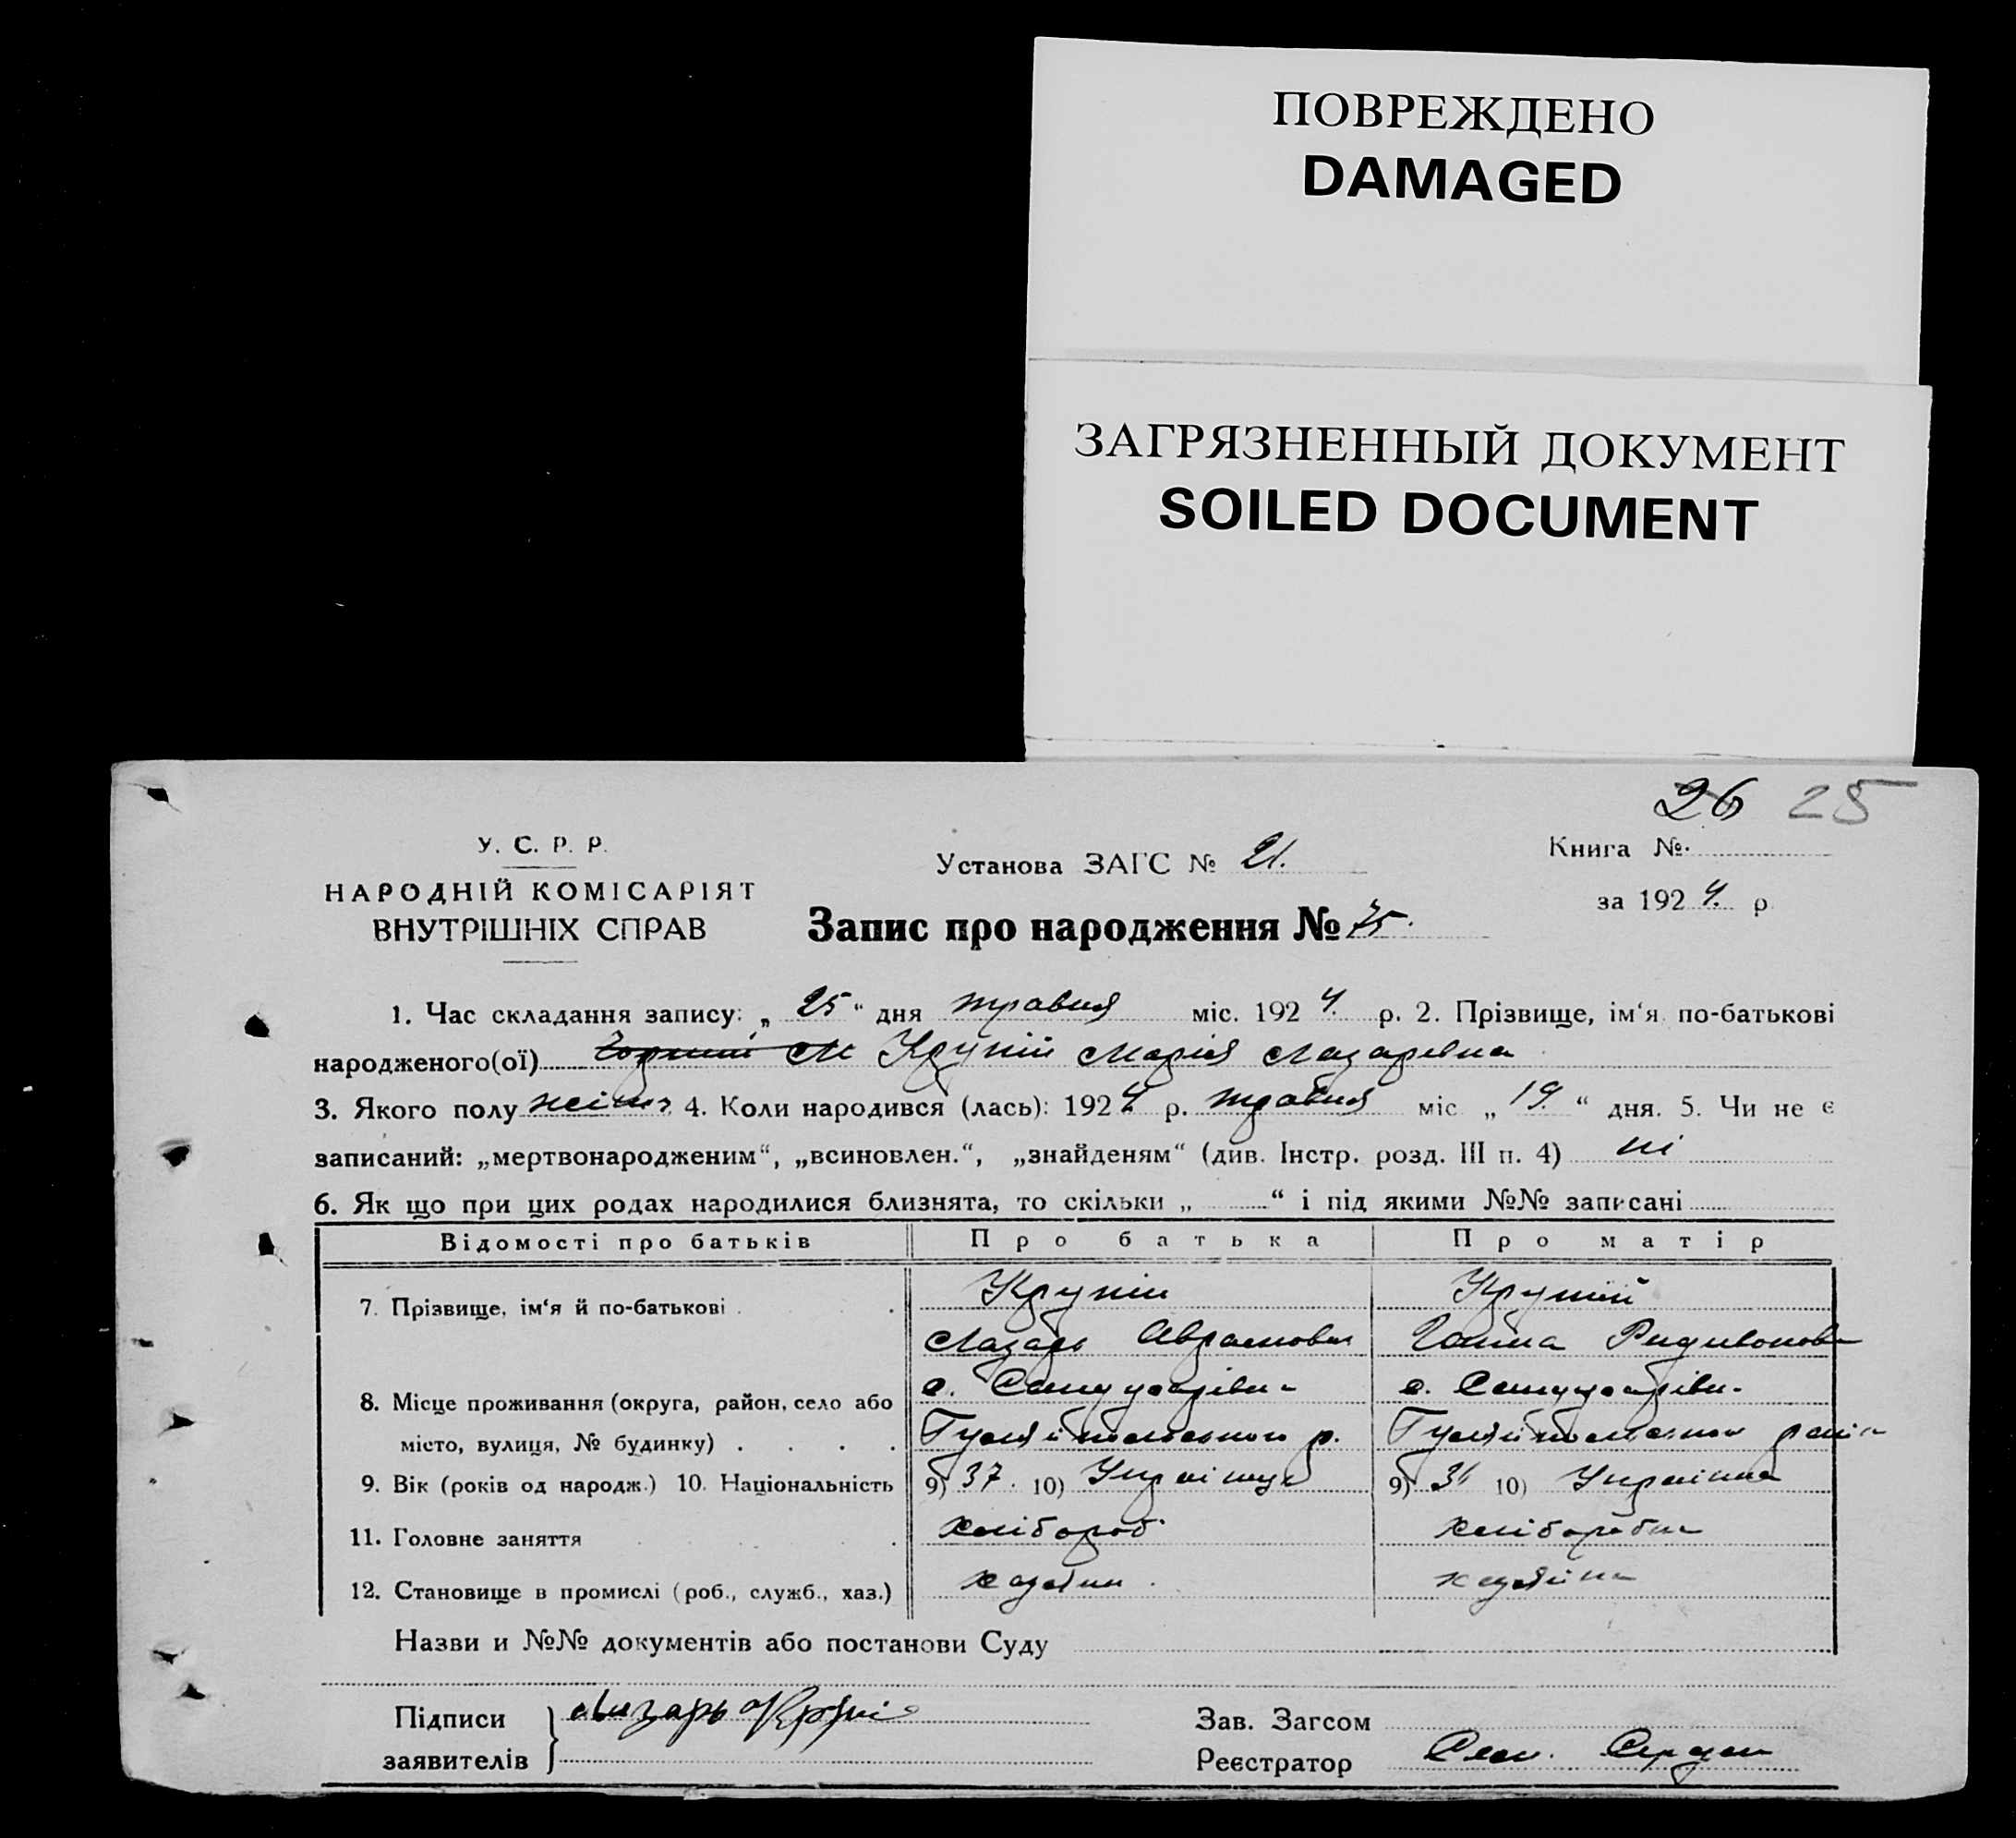 ПОВРЕЖДЕНО
DAMAGED
ЗАГРЯЗНЕННЫЙ ДОКУМЕНТ
SOILED DOCUMENT
26 25
У. С. Р. Р.
НАРОДНІЙ КОМІСАРІЯТ
ВНУТРІШНІХ СПРАВ
Установа ЗАГС № 21.
Книга №
за 1924. р.
Запис про народження № 75.
1. Час складання запису: „ 25 “ дня травня міс. 1924. р. 2. Прізвище, ім‘я по-батькові
народженого(ої) Крупій Марія Лазарівна
3. Якого полу жіноч 4. Коли народився (лась): 1924 р. травня міс „ 19. “ дня. 5. Чи не є
записаний: „мертвонародженим“, „всиновлен.“, „знайденям“ (див. Інстр. розд. III п. 4) ні
6. Як що при цих родах народилися близнята, то скільки „ “ і під якими №№ записані
Відомості про батьків Про батька Про матір
7. Прізвище, ім‘я й по-батькові Крупій Крупій
Лазарь Аврамович Ганна Родивонов
8. Місце проживання (округа, район, село або с. с.
місто, вулиця, № будинку) Гуляйпольського р. Гуляйпольського
9. Вік (років од народж.) 10. Національність 9) 37. 10) Українець 9) 31 10) Українка
11. Головне заняття хлібороб хліборобка
12. Становище в промислі (роб., служб., хаз.) хазяин хазяйка
Назви и №№ документів або постанови Суду
Підписи Лазарь Крупій
заявителів
Зав. Загсом
Реєстратор